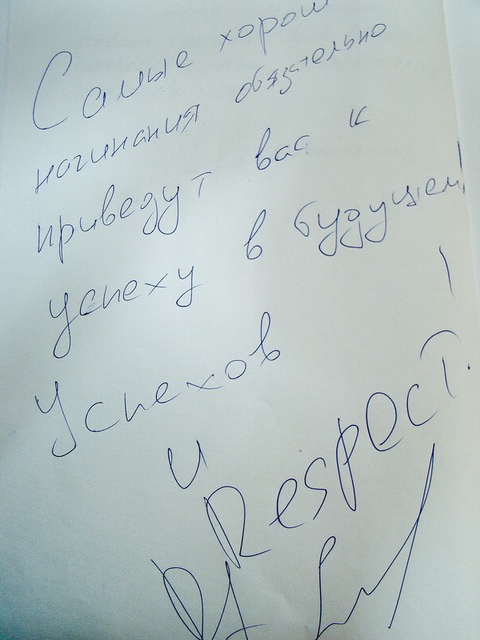 Самые хорош
начинания обязательно
приведут вас к
успеху в будущем!
Успехов !
и
Respect.